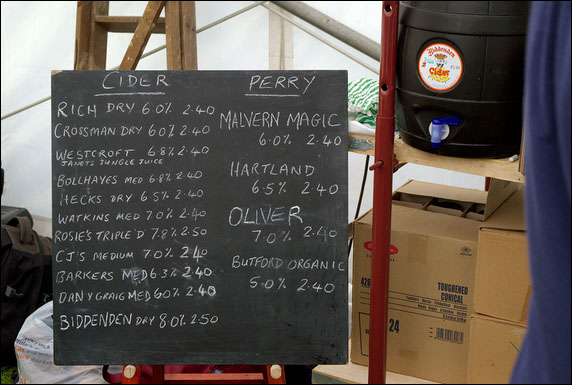 CIDER
RICH DRY 6.0% 2.40
CROSSMAN DRY 6.0% 2.40
WESTCROFT 6.8% 2.40
JANETS JUNGLE JUICE
BOLLHAYES MED 6.8% 2.40
HECKS DRY 6.5% 2.40
WATKINS MED 7.0% 2.40
ROSIE'S TRIPLE D 7.8% 2.50
CJ'S MEDIUM 7.0% 2.40
BARKERS MED 6.3% 2.40
DANYGRAIG MED 6.0% 2.40
BIDDENDEN DRY 8.0% 2.50
PERRY
MALVERN MAGIC
6.0% 2.40
HARTLAND
6.5% 2.40
OLIVER
7.0% 2.40
BUTFORD ORGANIC
5.0% 2.40
Biddenden
Cider
426
24
TOUGHENED
CONICAL